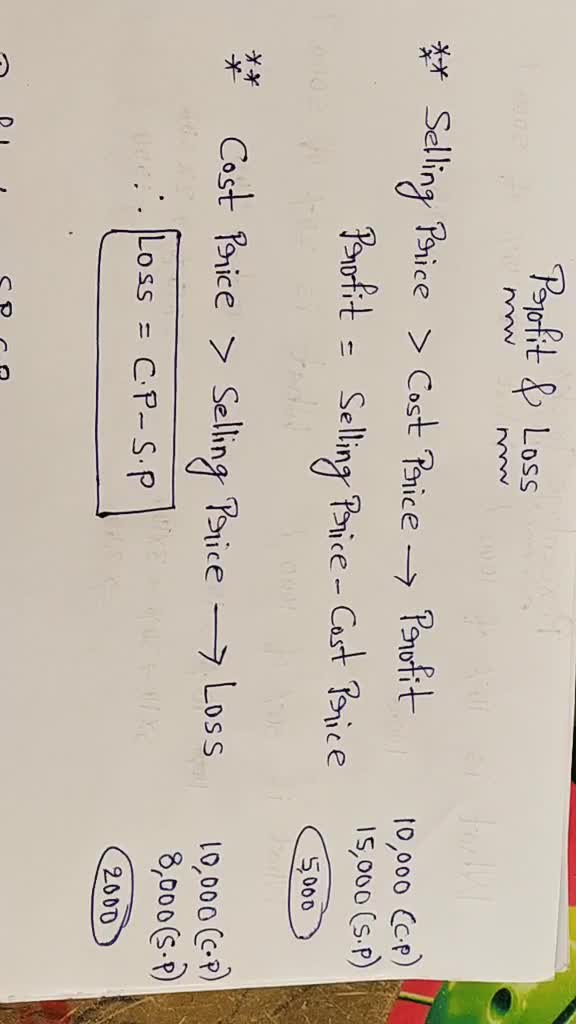 Profit & Loss
** * Selling Price > Cost Price → Profit
Profit = Selling Price - Cost Price
10,000 (C.P)
15,000 (S.P)
5,000
** * Cost Price > Selling Price → Loss
∴ Loss = C.P - S.P
10,000 (C.P)
8,000 (S.P)
2000